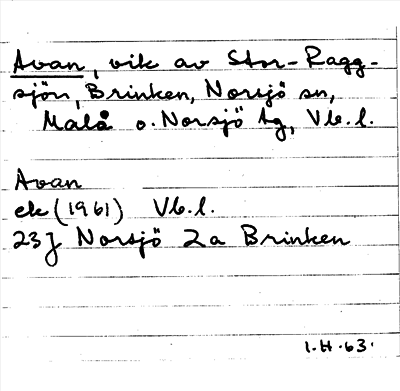 Avan, vik av Stor-Ragg-
sjön, Brinken, Norsjö sn,
Malå o. Norsjö tg, Vb. l.
Avan
ek (1961) Vb. l.
23J Norsjö 2a Brinken
I.H.63.